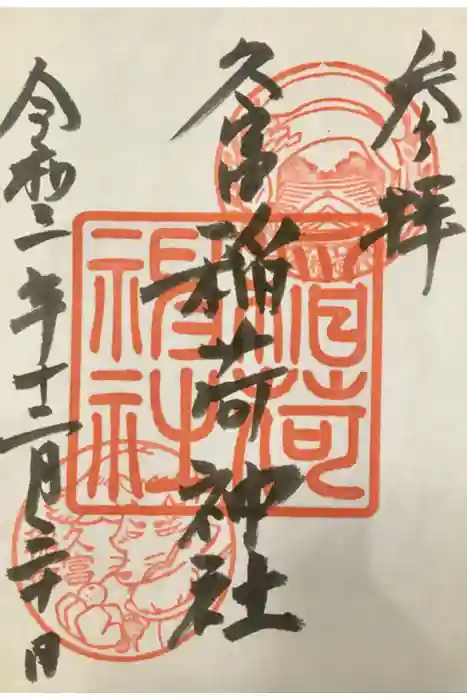 参拝
久富稲荷神社
令和二年十二月三十日
稲荷
神社
久富